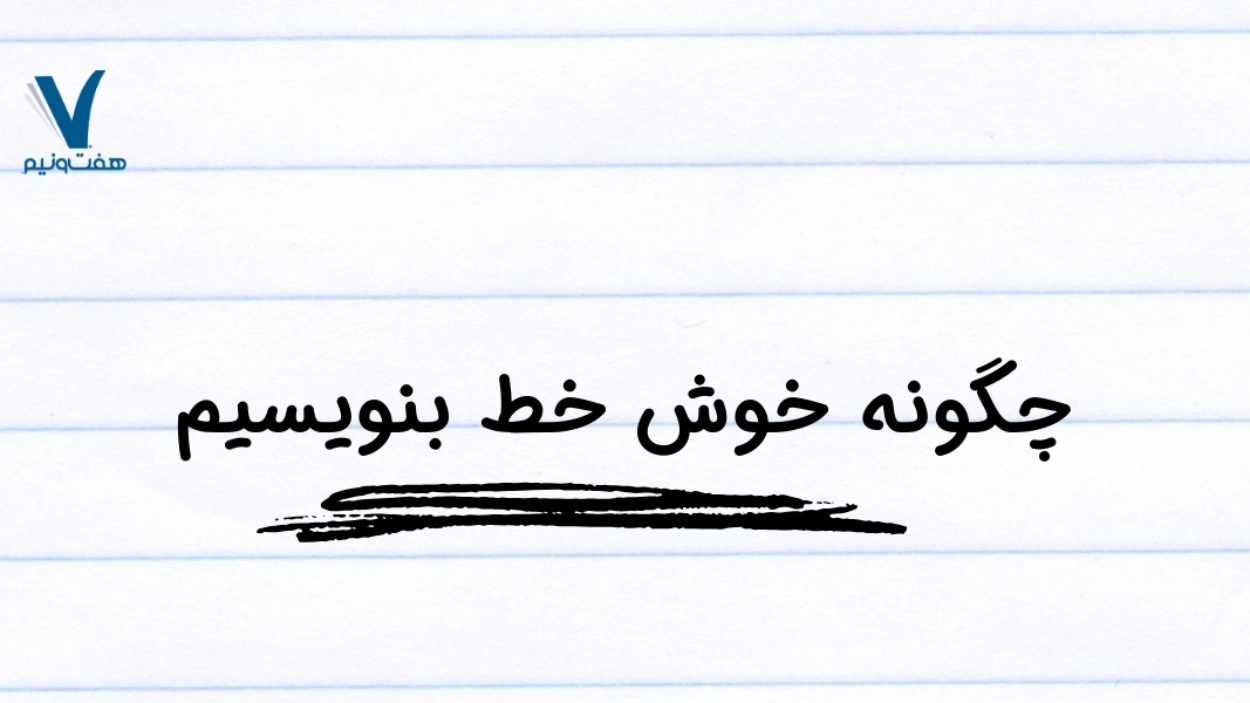 هفت‌ونیم
چگونه خوش خط بنویسیم